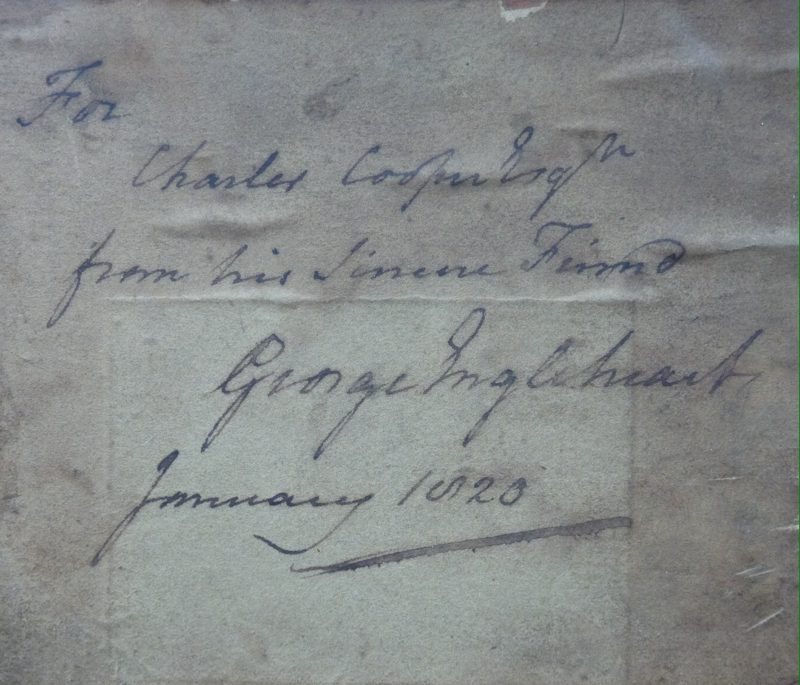 For
Charles Cooper Esqr
from his Sincere Friend
George Engleheart
January 1820